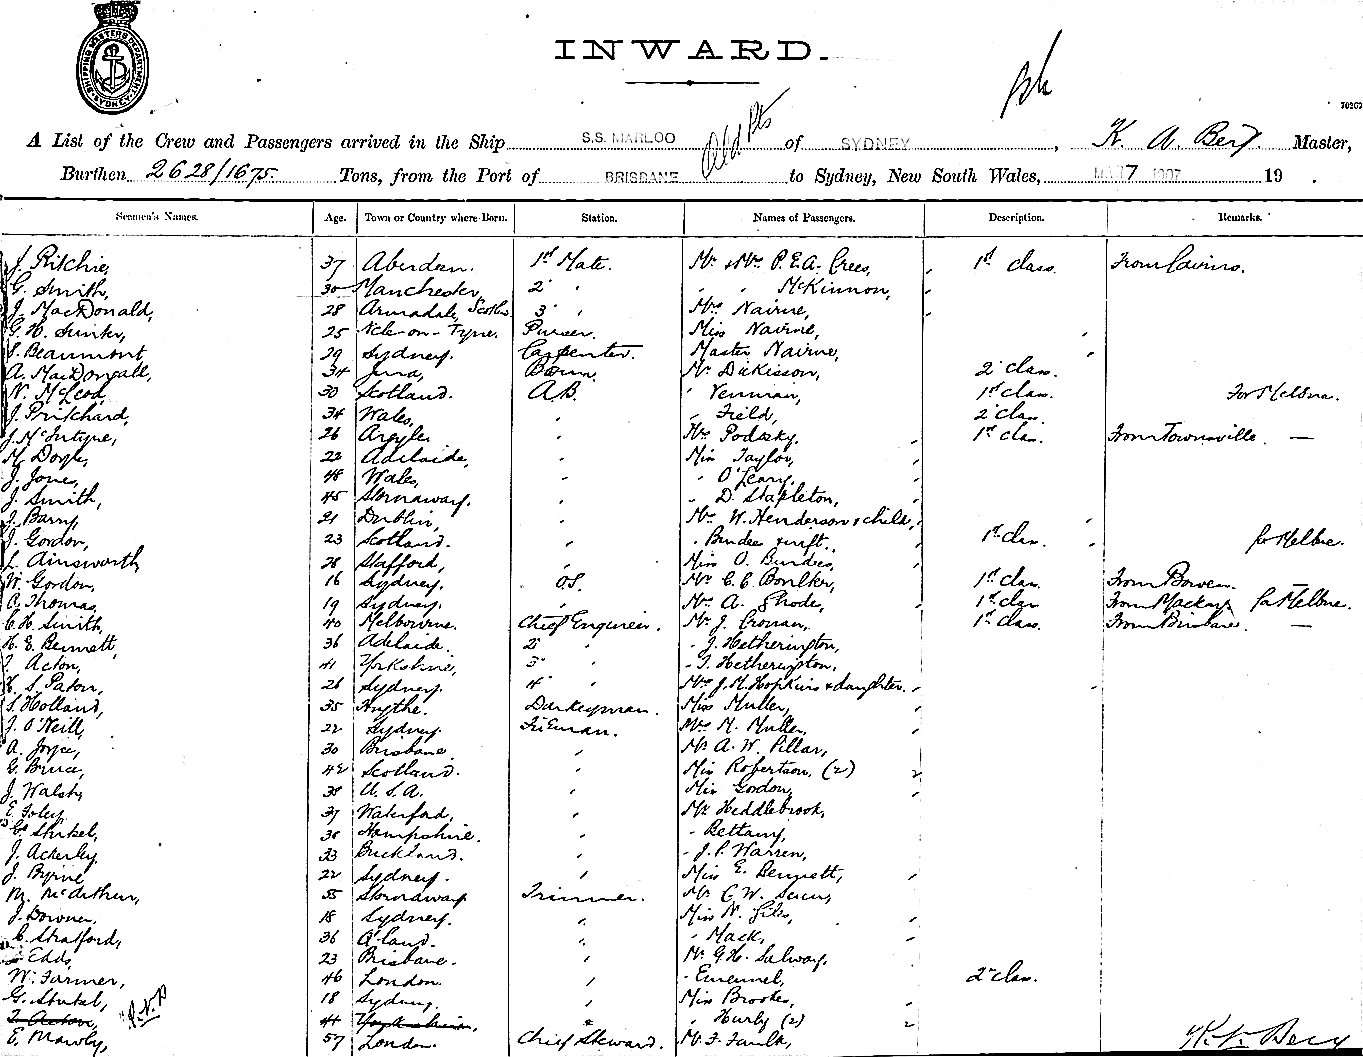 SHIPPING MASTERS DEPARTMENT SYDNEY
INWARD.
70267
A List of the Crew and Passengers arrived in the Ship S.S. MARLOO Old Pts of SYDNEY, K. A. Berg Master,
Burthen 2628/1675 Tons, from the Port of BRISBANE to Sydney, New South Wales, 7 1907 19 .
Seamen's Names. Age. Town or Country where Born. Station. Names of Passengers. Description. Remarks.
J. Ritchie, 37 Aberdeen. 1st Mate. Mr & Mrs P.E.A. Crees, 1st class. From Cairns.
G. Smith, 30 Manchester, 2 " " " McKinnon, "
J. MacDonald, 28 Armadale, 3 " Mrs Nairne, "
G. H. 25 Ncle-on-Tyne. Purser. Miss Nairne,
S. Beaumont 29 Sydney. Carpenter. Master Nairne, "
A. MacDougall, 34 Bosun. Mr Dickisson, 2 class.
N. McLeod, 30 Scotland. A.B. " Venman, 1st class. For Melbne.
J. Pritchard, 34 Wales, " " Field, 2 class.
J. McIntyre, 26 Argyle. " Mrs Podosky, 1st class. From Townsville. —
M. Doyle, 22 Adelaide, " Miss Taylor, "
J. Jones, 48 Wales, " " O'Leary, "
J. Smith, 45 Stornaway. " " D. Stapleton, "
J. Barry, 21 Dublin, " Mrs W. Henderson & child, "
J. Gordon, 23 Scotland. " " 1st class. " for Melbne.
L. Ainsworth, 28 Stafford, " Miss O.
W. Gordon, 16 Sydney. O.S. Mr C. E. 1st class. From Bowen. —
A. Thomas, 19 Sydney. " Mr A. Rhode, 1st class From Mackay for Melbne.
C. H. Smith, 40 Melbourne. Chief Engineer. Mr J. Cronan, 1st class. From Brisbane. —
H. E. Bennett, 36 Adelaide. 2 " " J. Hetherington,
J. Acton, 41 Yorkshire, 3 " " T. Hetherington.
H. S. Paton, 26 Sydney. 4 " Mrs J. M. Hopkins & daughter.
S. Holland, 35 Hythe. Donkeyman. Miss Muller,
J. O'Neill, 22 Sydney Fireman. Mrs M. Muller,
A. Joyce, 30 Brisbane " Mr A. W. Pillar,
G. Bruce, 42 Scotland. " Miss Robertson, (2) 2
J. Walsh, 38 U.S.A. " Miss Gordon,
E. Foley 37 Waterford, " Mr Heddlebrook,
Gs Stubel, 38 Hampshire. " " Bettany,
J. Ackerley, 33 Buckland. " " J. P. Warren,
J. Byrne 22 Sydney. " Miss E. Bennett,
M. McArthur, 55 Stornaway Trimmer. Mr C. W.
J. Downer. 18 Sydney. " Miss N. Giles,
C. Strafford, 36 Q'land. " " Mack,
Edds, 23 Brisbane. " Mr G. H. Salway.
W. Farmer, 46 London " " 2 class.
G. Stubel, 18 Sydney, " Miss Brookes,
J. Acton, 41 Yorkshire, " " Hurby (2) 2
E. Mawby, 57 London. Chief Steward. Mr F. Faulk,